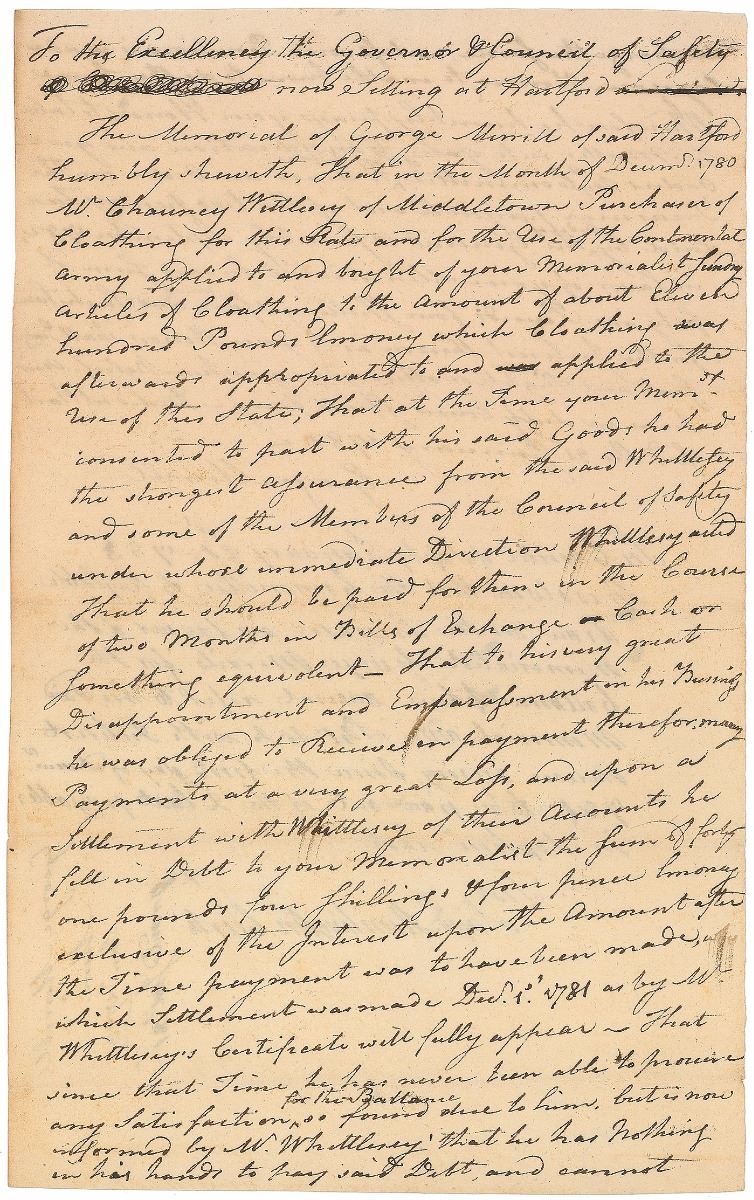 To His Excellency the Governor & Council of Safety
now Sitting at Hartford
The Memorial of George Merrill of said Hartford
humbly sheweth, That in the Month of Decemr. 1780
Mr. Chauncy Wittlesey of Middletown Purchaser of
Cloathing for this State and for the Use of the Continental
Army applied to and bought of your Memorialist Sundry
Articles of Cloathing to the Amount of about Eleven
hundred Pounds Lmoney which Cloathing was
afterwards appropriated to and was applied to the
Use of this State; That at the Time your Memst.
consented to part with his said Goods he had
the strongest assurance from the said Whittlesey
and some of the Members of the Council of Safety
under whose immediate Direction Whittlesey acted
That he should be paid for them in the Course
of two Months in Bills of Exchange or Cash or
something equivalent — That to his very great
Disappointment and Embarassment in his Business
he was obliged to Receive in payment therefor, many
Payments at a very great Loss, and upon a
Settlement with Whittlesey of their Accounts he
fell in Debt to your Memorialist the Sum of forty
one pounds four Shillings & four pence Lmoney
exclusive of the Interest upon the Amount after
the Time payment was to have been made,
which Settlement was made Decr. 1st. 1781 as by Mr.
Whittlesey's Certificate will fully appear — That
since that Time he has never been able to procure
any Satisfaction for the Ballance so found due to him, but is now
informed by Mr. Whittlesey that he has Nothing
in his hands to pay said Debt, and cannot